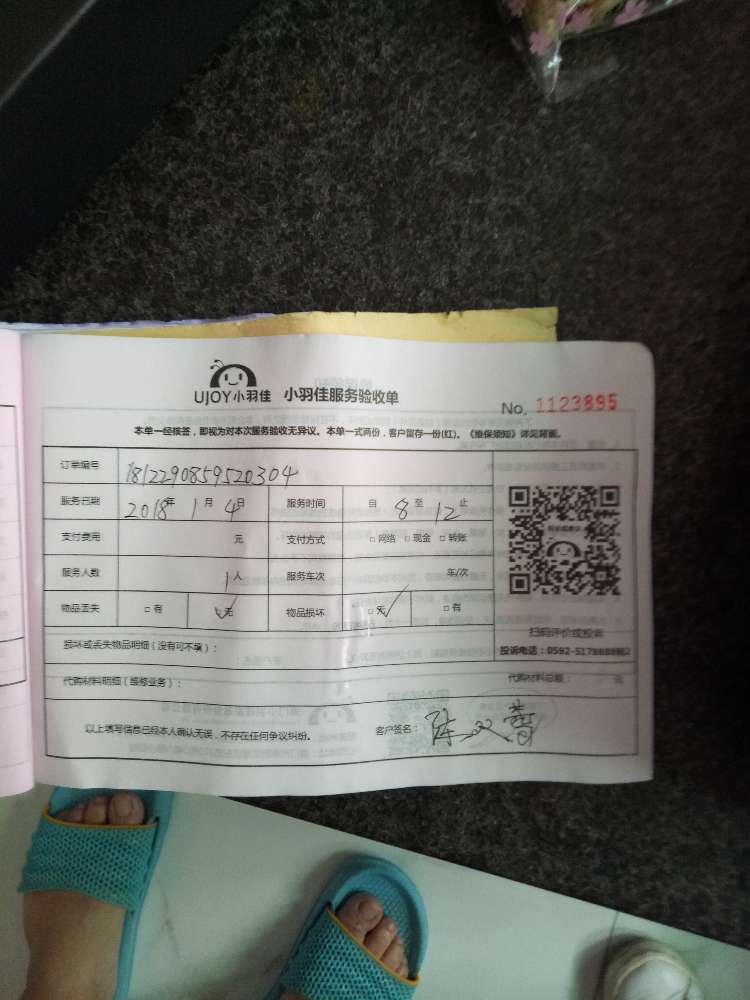 UJOY小羽佳 小羽佳服务验收单
No. 1123895
本单一经核答，即视为对本次服务验收无异议。本单一式两份，客户留存一份(红)。《维保须知》详见背面。
订单编号 1812290859520304
服务日期 2018年 1月 4日 服务时间 自 8 至 12 止
支付费用 元 支付方式 □网络 □现金 □转账
服务人数 1人 服务车次 车/次
物品丢失 □有 ☑无 物品损坏 ☑无 □有
扫码评价或投诉
损坏或丢失物品明细（没有可不填）：
投诉电话：0592-5178888转2
代购材料明细（维修业务）： 代购材料总额： 元
以上填写信息已经本人确认无误，不存在任何争议纠纷。 客户签名：